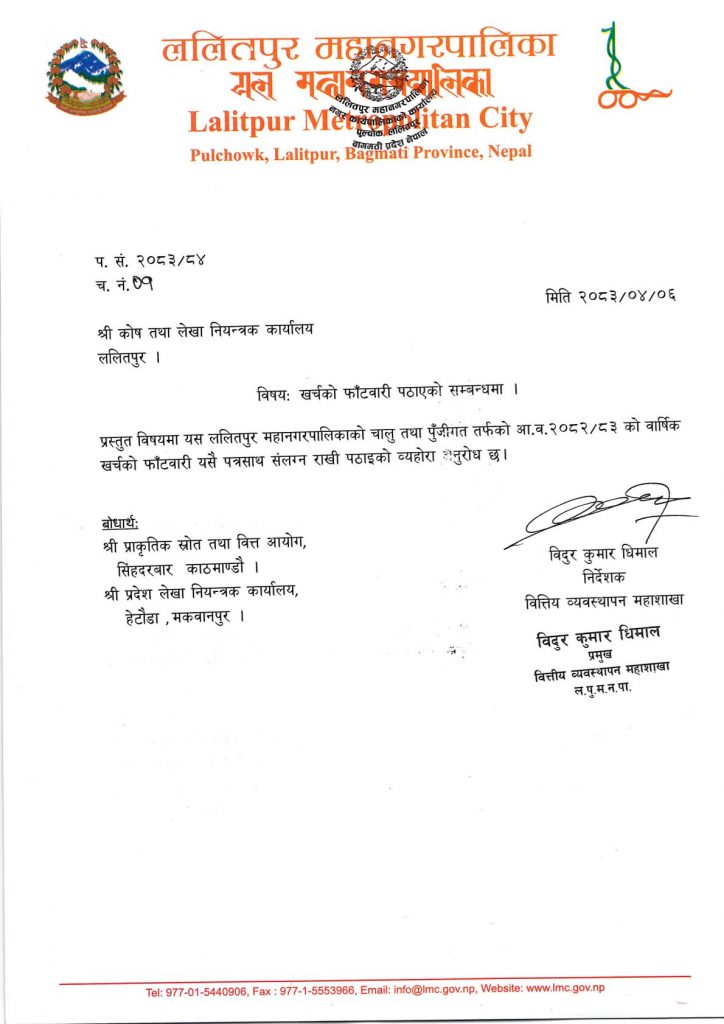 ललितपुर महानगरपालिका
Lalitpur Metropolitan City
Pulchowk, Lalitpur, Bagmati Province, Nepal
ललितपुर महानगरपालिका
नगर कार्यपालिकाको कार्यालय
पुल्चोक, ललितपुर
बागमती प्रदेश नेपाल
प. सं. २०८३/८४
च. नं. ०१
मिति २०८३/०४/०६
श्री कोष तथा लेखा नियन्त्रक कार्यालय
ललितपुर ।
विषय: खर्चको फाँटवारी पठाएको सम्बन्धमा ।
प्रस्तुत विषयमा यस ललितपुर महानगरपालिकाको चालु तथा पुँजीगत तर्फको आ.व.२०८२/८३ को वार्षिक
खर्चको फाँटवारी यसै पत्रसाथ संलग्न राखी पठाइको व्यहोरा अनुरोध छ।
बोधार्थ:
श्री प्राकृतिक स्रोत तथा वित्त आयोग,
सिंहदरबार काठमाण्डौ ।
श्री प्रदेश लेखा नियन्त्रक कार्यालय,
हेटौडा ,मकवानपुर ।
विदुर कुमार धिमाल
निर्देशक
वित्तिय व्यवस्थापन महाशाखा
विदुर कुमार धिमाल
प्रमुख
वित्तीय व्यवस्थापन महाशाखा
ल.पु.म.न.पा.
Tel: 977-01-5440906, Fax : 977-1-5553966, Email: info@lmc.gov.np, Website: www.lmc.gov.np